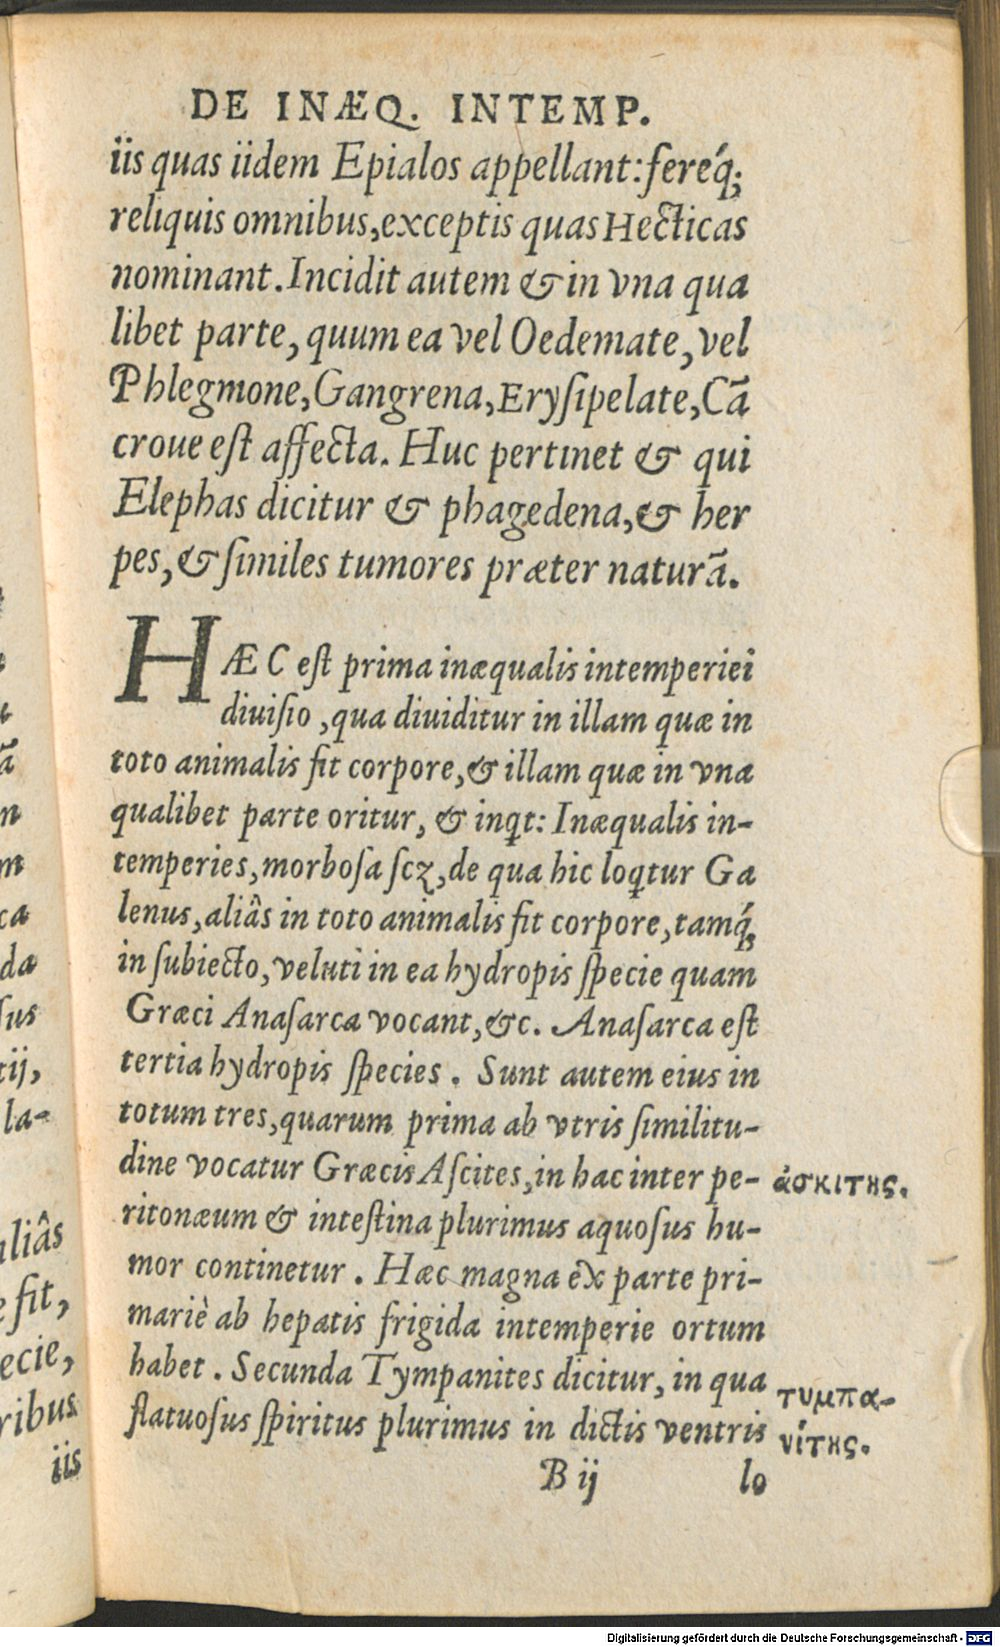 DE INÆQ. INTEMP.
iis quas iidem Epialos appellant: fereq́;
reliquis omnibus, exceptis quas Hecticas
nominant. Incidit autem & in vna qua
libet parte, quum ea vel Oedemate, vel
Phlegmone, Gangrena, Erysipelate, Cā
croue est affecta. Huc pertinet & qui
Elephas dicitur & phagedena, & her
pes, & similes tumores præter naturā.
HÆC est prima inæqualis intemperiei
diuisio, qua diuiditur in illam quæ in
toto animalis fit corpore, & illam quæ in vna
qualibet parte oritur, & inqt: Inæqualis in-
temperies, morbosa scꝫ, de qua hic loqtur Ga
lenus, aliâs in toto animalis fit corpore, tamq́;
in subiecto, veluti in ea hydropis specie quam
Græci Anasarca vocant, &c. Anasarca est
tertia hydropis species. Sunt autem eius in
totum tres, quarum prima ab vtris similitu-
dine vocatur Græcis Ascites, in hac inter pe-
ἀσκιτης.
ritonæum & intestina plurimus aquosus hu-
mor continetur. Hæc magna ex parte pri-
mariè ab hepatis frigida intemperie ortum
habet. Secunda Tympanites dicitur, in qua
τυμπα-
flatuosus spiritus plurimus in dictis ventris
νίτης.
B ij lo
ā
n
m
ca
da
sus
tij,
la-
aliâs
e fit,
ecie,
ribus
iis
Digitalisierung gefördert durch die Deutsche Forschungsgemeinschaft - DFG